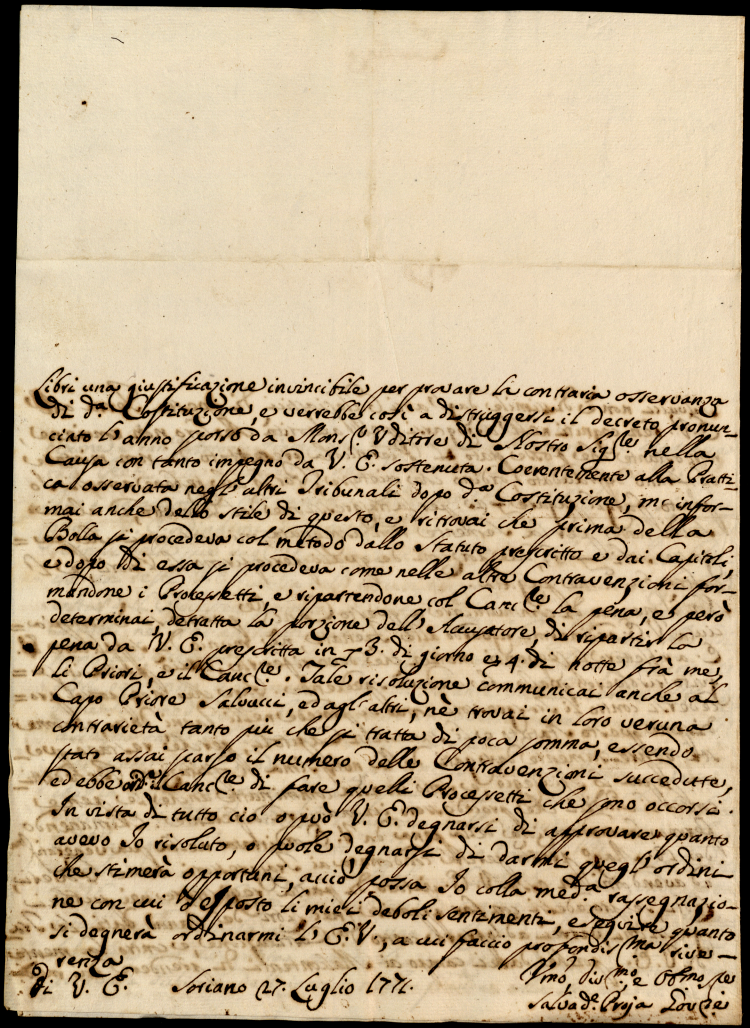 Libri una giustificazione invincibile per provare la contraria osservanza
di d.ª Costituzione, e verrebbe così a distruggersi il decreto pronun-
ciato l'anno scorso da Mons.re Uditre di Nostro Sig.re nella
Causa con tanto impegno da V. E. sostenuta. Coerentemente alla Pratti-
ca osservata negl'altri Tribunali dopo d.ª Costituzione, m'infor-
mai anche dello stile di questo, e ritrovai che prima della
Bolla si procedeva col metodo dallo Statuto prescritto e dai Capitoli,
e dopo di essa si procedeva come nelle altre Contravenzioni for-
mandone i Processetti, e ripartendone col Canc.re la pena, e però
determinai, detratta la porzione dell'Accusatore, di ripartir la
pena da V. E. prescritta in 3. di giorno e 4. di notte frà me,
li Priori, e il Canc.re. Tale risoluzione communicai anche al
Capo Priore Salvucci, ed agl'altri, nè trovai in loro veruna
contrarietà tanto più che si tratta di poca somma, essendo
stato assai scarso il numero delle Contravenzioni succedutte,
ed ebbe ord.e il Canc.re di fare quelli Processetti che sono occorsi.
In vista di tutto cio o può V. E. degnarsi di approvare quanto
avevo Io risoluto, o vuole degnarsi di darmi quegl'ordini
che stimerà opportuni, acciò possa Io colla med.ª rassegnazio-
ne con cui hò esposto li miei deboli sentimenti, eseguire quanto
si degnerà ordinarmi l'E. V., a cui faccio profondis.ma rive-
renza
Di V. E. Soriano 27. Luglio 1771.
Vmo, div.mo, e Obmo s.re
Salvad.e Proja Gov.re